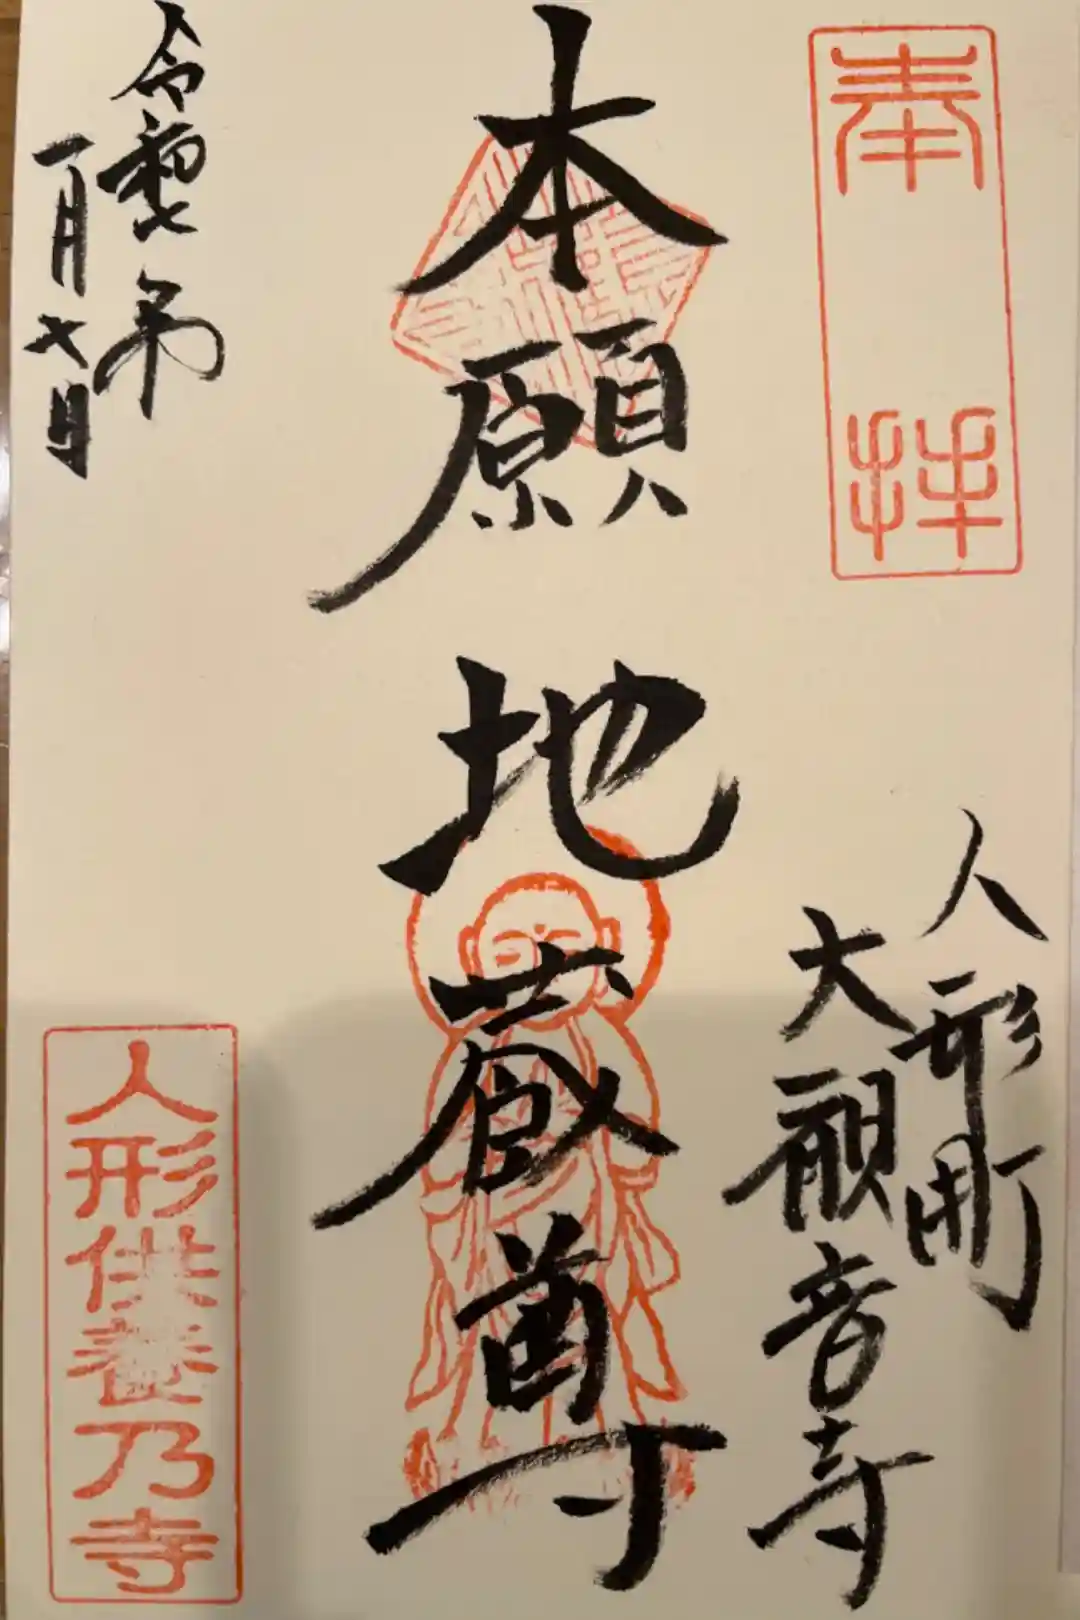 奉拝
人形町
大観音寺
本願地蔵尊
令和七年
一月七日
人形供養乃寺